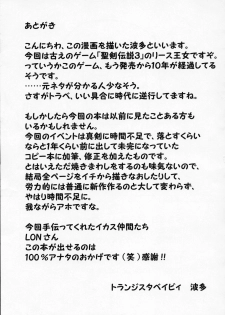 あとがき
こんにちわ、この漫画を描いた波多といいます。
今回は古えのゲーム「聖剣伝説3」のリース王女ですぞ。
っていうかこのゲーム、もう発売から10年が経過してるそうな。
…元ネタが分かる人少なそう。
さすがトラベ、いい具合に時代に逆行してますね。
もしかしたら今回の本は以前に見たことある方も
いるかもしれません。
今回のイベントは真剣に時間不足で、落とすくらい
ならと1年くらい前に出して未完になっていた
コピー本に加筆、修正を加えたものです。
とはいえただ焼きましをするのも味気ないので、
結局全ページをイチから描きなおしたりして、
労力的には普通に新作作るのと大して変わらず、
やはり時間不足に。
我ながらアホですわ。
今回手伝ってくれたイカス仲間たち
LONさん
この本が出せるのは
100%アナタのおかげです（笑）感謝!!
トランジスタベイビィ　波多